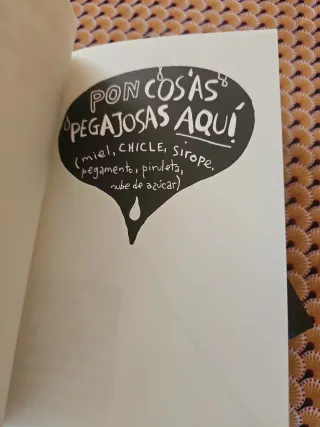 PON COSAS
PEGAJOSAS AQUÍ
(miel, CHICLE, sirope,
pegamento, piruleta,
nube de azúcar)